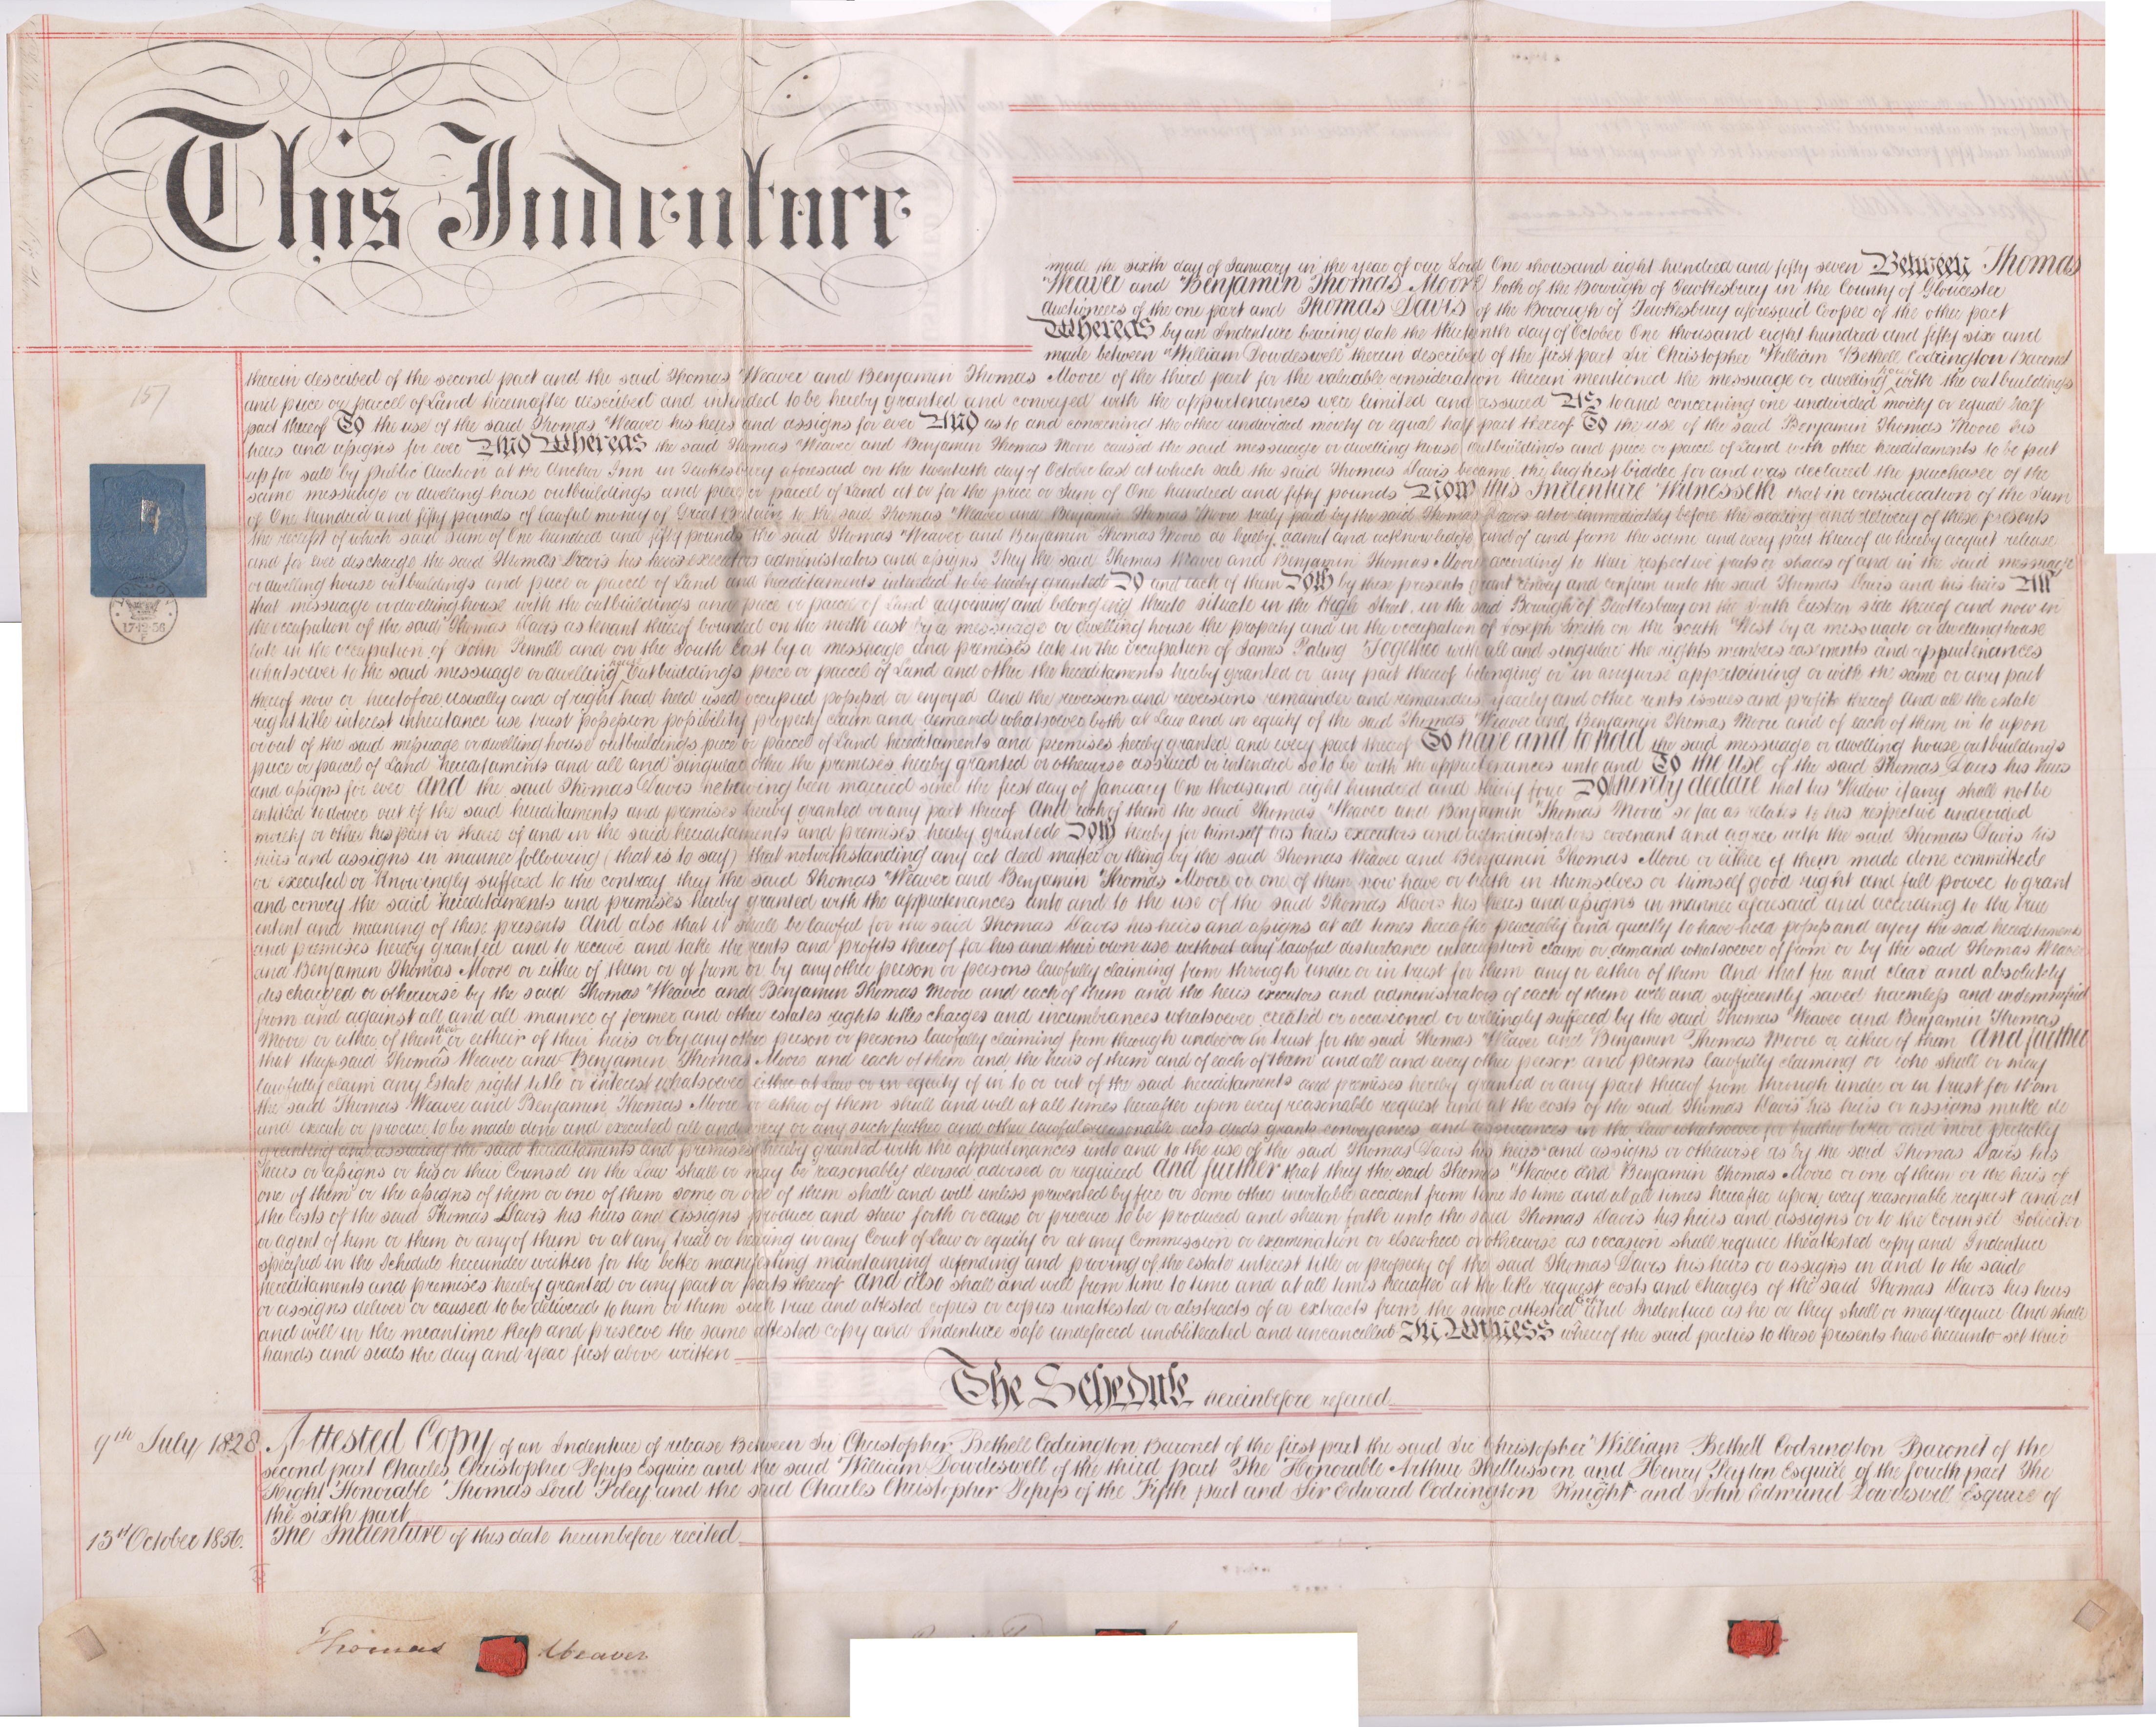 This Indenture
made the sixth day of January in the year of our Lord One thousand eight hundred and fifty seven Between Thomas
Weaver and Benjamin Thomas Moore both of the Borough of Tewkesbury in the County of Gloucester
Auctioneers of the one part and Thomas Davis of the Borough of Tewkesbury aforesaid Cooper of the other part
Whereas by an Indenture bearing date the thirteenth day of October One thousand eight hundred and fifty six and
made between William Dowdeswell therein described of the first part Sir Christopher William Bethell Codrington Baronet
therein described of the second part and the said Thomas Weaver and Benjamin Thomas Moore of the third part for the valuable consideration therein mentioned the messuage or dwelling house with the outbuildings
and piece or parcel of Land hereinafter described and intended to be hereby granted and conveyed with the appurtenances were limited and assured As to and concerning one undivided moiety or equal half
part thereof To the use of the said Thomas Weaver his heirs and assigns for ever And as to and concerning the other undivided moiety or equal half part thereof To the use of the said Benjamin Thomas Moore his
heirs and assigns for ever And Whereas the said Thomas Weaver and Benjamin Thomas Moore caused the said messuage or dwelling house outbuildings and piece or parcel of Land with other hereditaments to be put
up for sale by Public Auction at the Anchor Inn in Tewkesbury aforesaid on the twentieth day of October last at which sale the said Thomas Davis became the highest bidder for and was declared the purchaser of the
same messuage or dwelling house outbuildings and piece or parcel of Land at or for the price or Sum of One hundred and fifty pounds Now this Indenture Witnesseth that in consideration of the Sum
of One hundred and fifty pounds of lawful money of Great Britain to the said Thomas Weaver and Benjamin Thomas Moore truly paid by the said Thomas Davis at or immediately before the sealing and delivery of these presents
the receipt of which said Sum of One hundred and fifty pounds the said Thomas Weaver and Benjamin Thomas Moore do hereby admit and acknowledge and of and from the same and every part thereof do hereby acquit release
and for ever discharge the said Thomas Davis his heirs executors administrators and assigns They the said Thomas Weaver and Benjamin Thomas Moore according to their respective parts or shares of and in the said messuage
or dwelling house outbuildings and piece or parcel of Land and hereditaments intended to be hereby granted Do and each of them Doth by these presents grant convey and confirm unto the said Thomas Davis and his heirs All
that messuage or dwelling house with the outbuildings and piece or parcel of Land adjoining and belonging thereto situate in the High Street in the said Borough of Tewkesbury on the South Eastern side thereof and now in
the occupation of the said Thomas Davis as tenant thereof bounded on the north east by a messuage or dwelling house the property and in the occupation of Joseph Smith on the South West by a messuage or dwelling house
late in the occupation of John Pennell and on the South East by a messuage and premises late in the occupation of James Paling Together with all and singular the rights members easements and appurtenances
whatsoever to the said messuage or dwelling house outbuildings piece or parcel of Land and other the hereditaments hereby granted or any part thereof belonging or in anywise appertaining or with the same or any part
thereof now or heretofore usually and of right had held used occupied possessed or enjoyed And the reversion and reversions remainder and remainders yearly and other rents issues and profits thereof And all the estate
right title interest inheritance use trust possession possibility property claim and demand whatsoever both at Law and in equity of the said Thomas Weaver and Benjamin Thomas Moore and of each of them in to upon
or out of the said messuage or dwelling house outbuildings piece or parcel of Land hereditaments and premises hereby granted and every part thereof To have and to hold the said messuage or dwelling house outbuildings
piece or parcel of Land hereditaments and all and singular other the premises hereby granted or otherwise assured or intended so to be with the appurtenances unto and To the use of the said Thomas Davis his heirs
and assigns for ever And the said Thomas Davis not having been married since the first day of January One thousand eight hundred and thirty four Do hereby declare that his Widow if any shall not be
entitled to dower out of the said hereditaments and premises hereby granted or any part thereof And each of them the said Thomas Weaver and Benjamin Thomas Moore so far as relates to his respective undivided
moiety or other his part or share of and in the said hereditaments and premises hereby granted Doth hereby for himself his heirs executors and administrators covenant and agree with the said Thomas Davis his
heirs and assigns in manner following (that is to say) that notwithstanding any act deed matter or thing by the said Thomas Weaver and Benjamin Thomas Moore or either of them made done committed
or executed or knowingly suffered to the contrary they the said Thomas Weaver and Benjamin Thomas Moore or one of them now have or hath in themselves or himself good right and full power to grant
and convey the said hereditaments and premises hereby granted with the appurtenances unto and to the use of the said Thomas Davis his heirs and assigns in manner aforesaid and according to the true
intent and meaning of these presents And also that it shall be lawful for the said Thomas Davis his heirs and assigns at all times hereafter peaceably and quietly to have hold possess and enjoy the said hereditaments
and premises hereby granted and to receive and take the rents and profits thereof for his and their own use without any lawful disturbance interruption claim or demand whatsoever of from or by the said Thomas Weaver
and Benjamin Thomas Moore or either of them or of from or by any other person or persons lawfully claiming from through under or in trust for them any or either of them And that free and clear and absolutely
discharged or otherwise by the said Thomas Weaver and Benjamin Thomas Moore and each of them and the heirs executors and administrators of each of them well and sufficiently saved harmless and indemnified
from and against all and all manner of former and other estates rights titles charges and incumbrances whatsoever created or occasioned or willingly suffered by the said Thomas Weaver and Benjamin Thomas
Moore or either of them or either of their heirs or by any other person or persons lawfully claiming from through under or in trust for the said Thomas Weaver and Benjamin Thomas Moore or either of them And further
that they said Thomas Weaver and Benjamin Thomas Moore and each of them and the heirs of them and of each of them and all and every other person and persons lawfully claiming or who shall or may
lawfully claim any Estate right title or interest whatsoever either at Law or in equity of in to or out of the said hereditaments and premises hereby granted or any part thereof from through under or in trust for them
the said Thomas Weaver and Benjamin Thomas Moore or either of them shall and will at all times hereafter upon every reasonable request and at the costs of the said Thomas Davis his heirs or assigns make do
and execute or procure to be made done and executed all and every or any such further and other lawful reasonable acts deeds grants conveyances and assurances in the Law whatsoever for further better and more perfectly
granting and assuring the said hereditaments and premises hereby granted with the appurtenances unto and to the use of the said Thomas Davis his heirs and assigns or otherwise as by the said Thomas Davis his
heirs or assigns or his or their Counsel in the Law shall or may be reasonably devised advised or required And further that they the said Thomas Weaver and Benjamin Thomas Moore or one of them or the heirs of
one of them or the assigns of them or one of them some or one of them shall and will unless prevented by fire or some other inevitable accident from time to time and at all times hereafter upon every reasonable request and at
the Costs of the said Thomas Davis his heirs and assigns produce and shew forth or cause or procure to be produced and shewn forth unto the said Thomas Davis his heirs and assigns or to the Counsel Solicitor
or agent of him or them or any of them or at any trial or hearing in any Court of Law or equity or at any Commission or examination or elsewhere or otherwise as occasion shall require the attested copy and Indenture
specified in the Schedule hereunder written for the better manifesting maintaining defending and proving of the estate interest title or property of the said Thomas Davis his heirs or assigns in and to the said
hereditaments and premises hereby granted or any part or parts thereof And also shall and will from time to time and at all times hereafter at the like request costs and charges of the said Thomas Davis his heirs
or assigns deliver or caused to be delivered to him or them such true and attested copies or copies unattested or abstracts of or extracts from the same attested Copy and Indenture as he or they shall or may require And shall
and will in the meantime keep and preserve the same attested copy and Indenture safe undefaced unobliterated and uncancelled In Witness whereof the said parties to these presents have hereunto set their
hands and seals the day and year first above written
The Schedule hereinbefore referred
9th July 1828 Attested Copy of an Indenture of release Between Sir Christopher Bethell Codrington Baronet of the first part the said Sir Christopher William Bethell Codrington Baronet of the
second part Charles Christopher Pepys Esquire and the said William Dowdeswell of the third part The Honorable Arthur Thellusson and Henry Peyton Esquire of the fourth part The
Right Honorable Thomas Lord Foley and the said Charles Christopher Pepys of the Fifth part and Sir Edward Codrington Knight and John Edmund Dowdeswell Esquire of
the sixth part
13th October 1856. The Indenture of this date hereinbefore recited
157
LONDON
17·12·56
Thomas Weaver